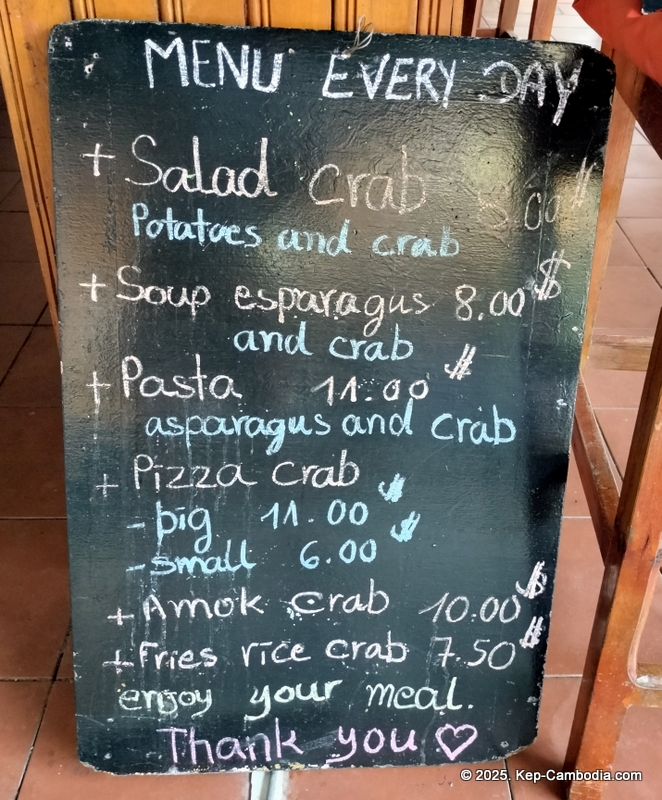 MENU EVERY DAY
+ Salad crab 8.00$
Potatoes and crab
+ Soup esparagus 8.00$
and crab
+ Pasta 11.00$
asparagus and crab
+ Pizza crab
- big 11.00$
- small 6.00$
+ Amok crab 10.00$
+ Fries rice crab 7.50$
enjoy your meal.
Thank you ♡
© 2025. Kep-Cambodia.com